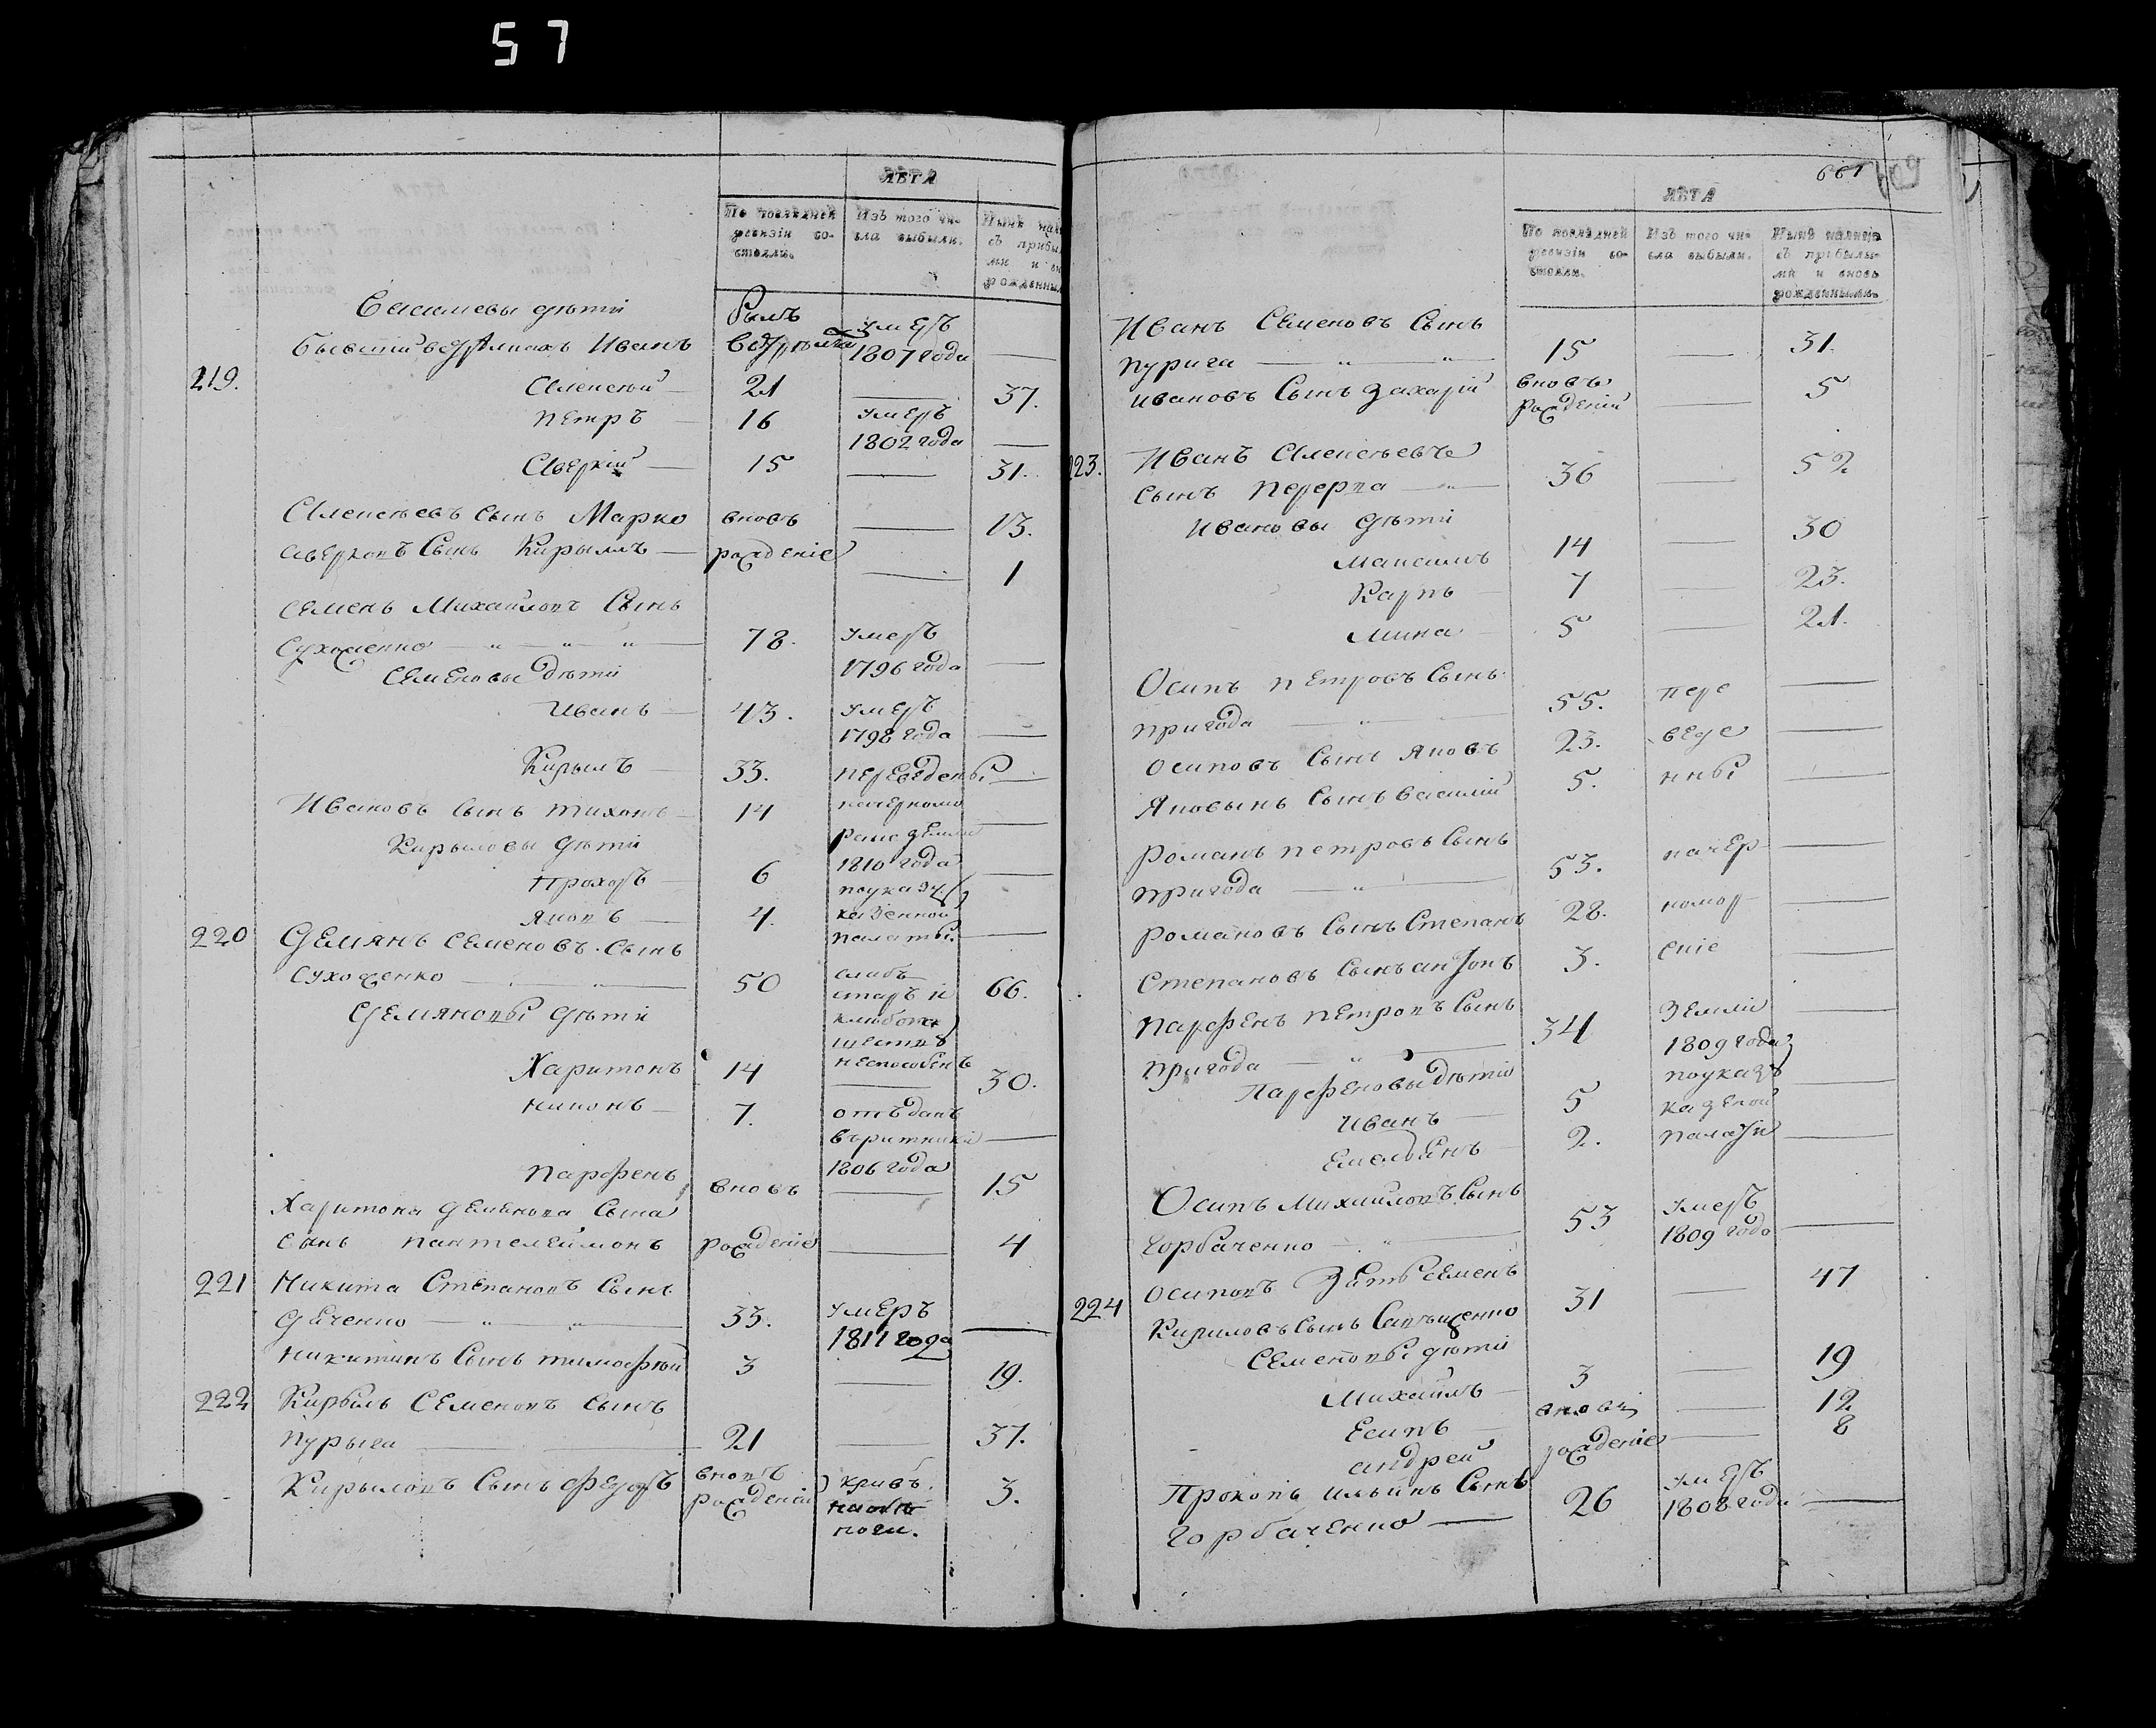 57
ЛѢТА
По послѣдней ревизіи состояли.
Изъ того числа выбыли.
Василиевы дѣти
былъ
умеръ
Бывший Иванъ
1807 года
219.
Алексѣй 21 37.
Петръ 16 умеръ
1802 года
Аверкій 15 31.
Алексѣевъ сынъ Марко вновь 13.
Аверковъ сынъ Кирылъ рожденіе 1
Семенъ Михайловъ Сынъ
Сухоженко 78. умеръ
1796 года
Семеновы дѣти
Иванъ 43. умеръ
1798 года
Кирылъ 33. переведены
Ивановъ сынъ Тихонъ 14
Кирыловы дѣти
1810 года
Прохоръ 6
казенной
Яковъ 4. палаты
220 Демянъ Семеновъ сынъ
Сухоженко 50 слабъ
старъ и 66.
Демяновы дѣти
неспособенъ
Харитонъ 14 30.
Никонъ 7. отъданъ
1806 года
Парфенъ вновь 15
Харитона Демянова Сына
сынъ Пантелеймонъ рожденіе 4
221 Никита Степановъ Сынъ
Даченко 33. умеръ
1811 года
Никитинъ Сынъ Тимофѣй 3 19.
222 Кирылъ Семеновъ сынъ
Пурыга 21 37.
Кирыловъ Сынъ Федоръ вновь рожденій кривъ 3.
ноги.
661
ЛѢТА
По послѣдней ревизіи состояли.
Изъ того числа выбыли.
Нынѣ налицо съ прибылыми и вновь рожденными.
Иванъ Семеновъ Сынъ
Пурига 15 31.
Ивановъ Сынъ Захарій вновь рожденій 5
223. Иванъ Алексѣевъ
сынъ Перерва 36 52
Ивановы дѣти
Максимъ 14 30
Карпъ 7 23.
Мина 5 21.
Осипъ Петровъ Сынъ
Пригода 55. пере
Осиповъ Сынъ Яковъ 23. веде
Яковынъ Сынъ Василий 5. нны
Романъ Петровъ Сынъ
Пригода 53. начер
Романовъ Сынъ Степанъ 28. номор
Степановъ Сынъ Антонъ 3. скіе
Парфенъ Петровъ Сынъ 34 земли
Пригода 1809 года
Парфеновы дѣти
Иванъ 5 казеной
Емельянъ 2. палаты
Осипъ Михаиловъ Сынъ
Горбаченко 53 умеръ
1809 года
Осиповъ Зять Семенъ
224 31 47
Кириловъ Сынъ
Семеновы дѣти
Михаилъ 3 19
Есипъ вновь 12
Андрей рожденіе 8
Прокопъ Ильинъ Сынъ
Горбаченко 26 умеръ
1808 года